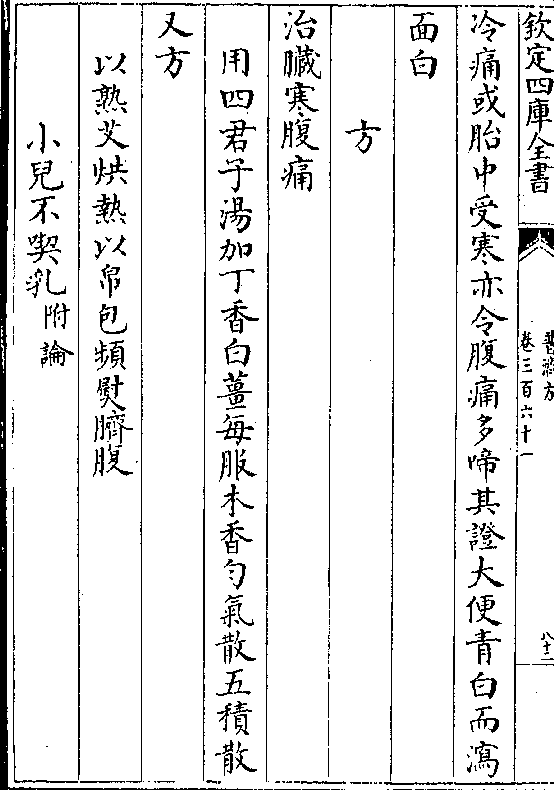 欽定四庫全書
普濟方
卷三百六十一
八十二
冷痛或胎中受寒亦令腹痛多啼其證大便青白而瀉
面白
方
治臟寒腹痛
用四君子湯加丁香白薑每服木香勻氣散五積散
又方
以熟艾烘熱以帛包頻熨臍腹
小兒不喫乳附論